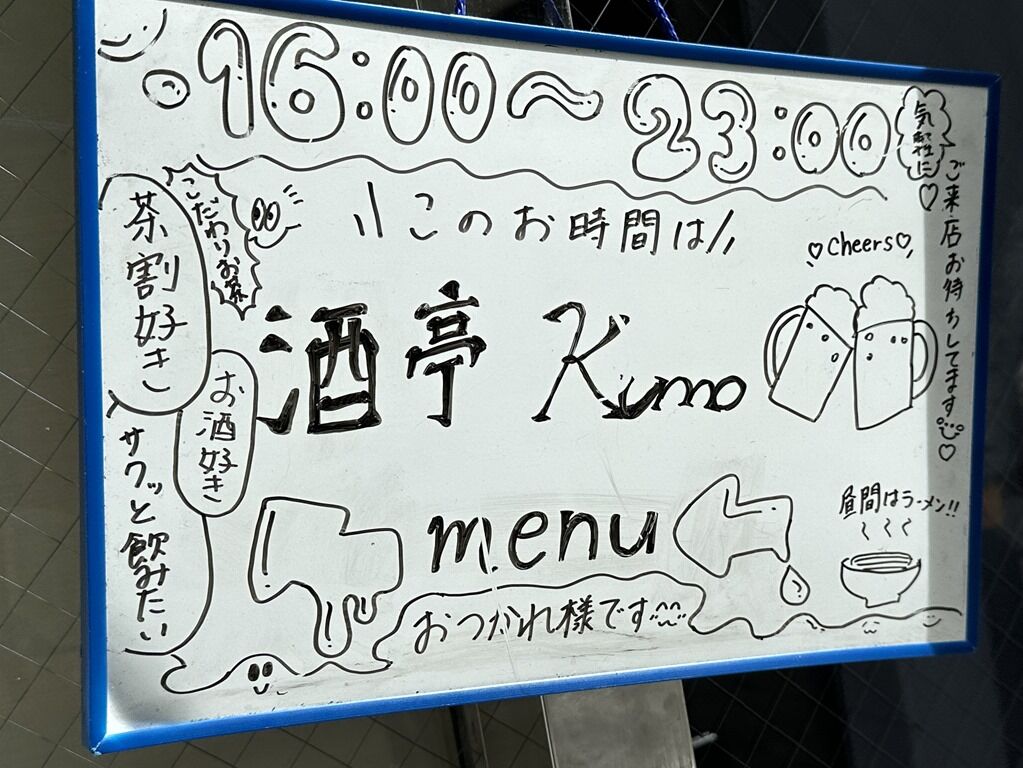 16:00～23:00
気軽に♡
ご来店お待ちしてます♡
\\このお時間は//
こだわりお茶
茶割好き
お酒好き
サクッと飲みたい
酒亭 Kumo
♡Cheers♡
menu
昼間はラーメン!!
おつかれ様です